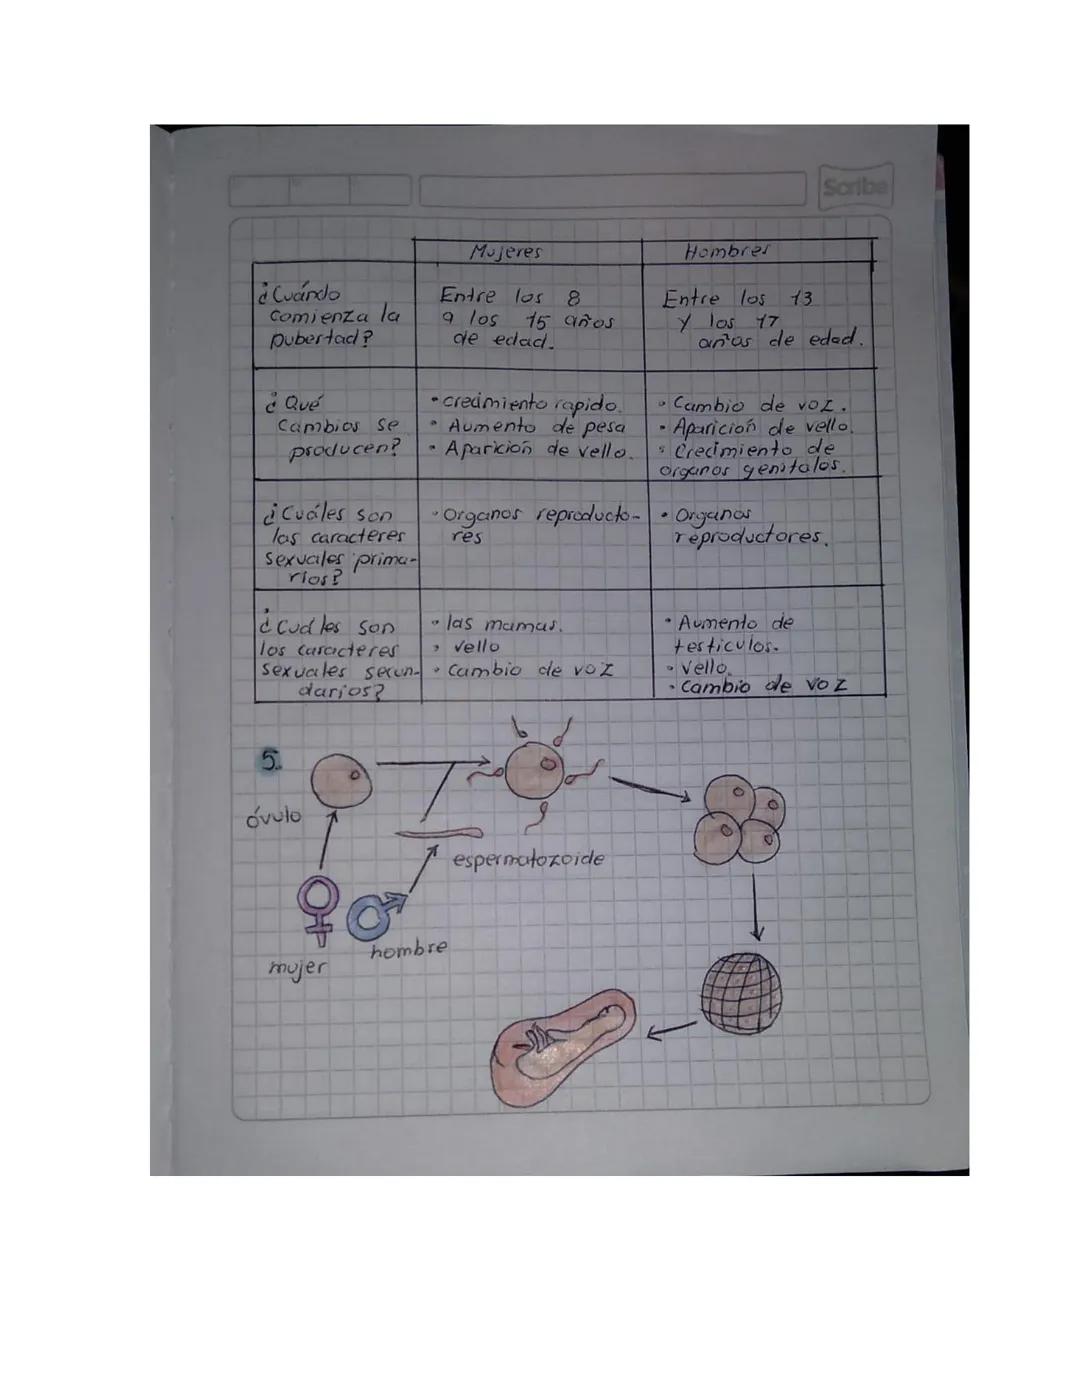 Scribe
Mujeres
Hombres
¿Cuándo
comienza la
pubertad?
Entre los 8
a los 15 años
de edad.
Entre los 13
y los 17
años de edad.
¿Qué
Cambios se
producen?
• crecimiento rapido.
• Aumento de pesa
• Aparición de vello.
• Cambio de voz.
• Aparición de vello.
• Crecimiento de
organos genitales.
¿Cuáles son
las caracteres
sexuales prima-
rios?
• Organos reproducto-
res
• Organos
reproductores.
¿Cuáles son
los caracteres
sexuales secun-
darios?
• las mamas.
• vello
• Cambio de voz
• Aumento de
testiculos.
• Vello.
• Cambio de voz
5.
óvulo
espermatozoide
mujer
hombre